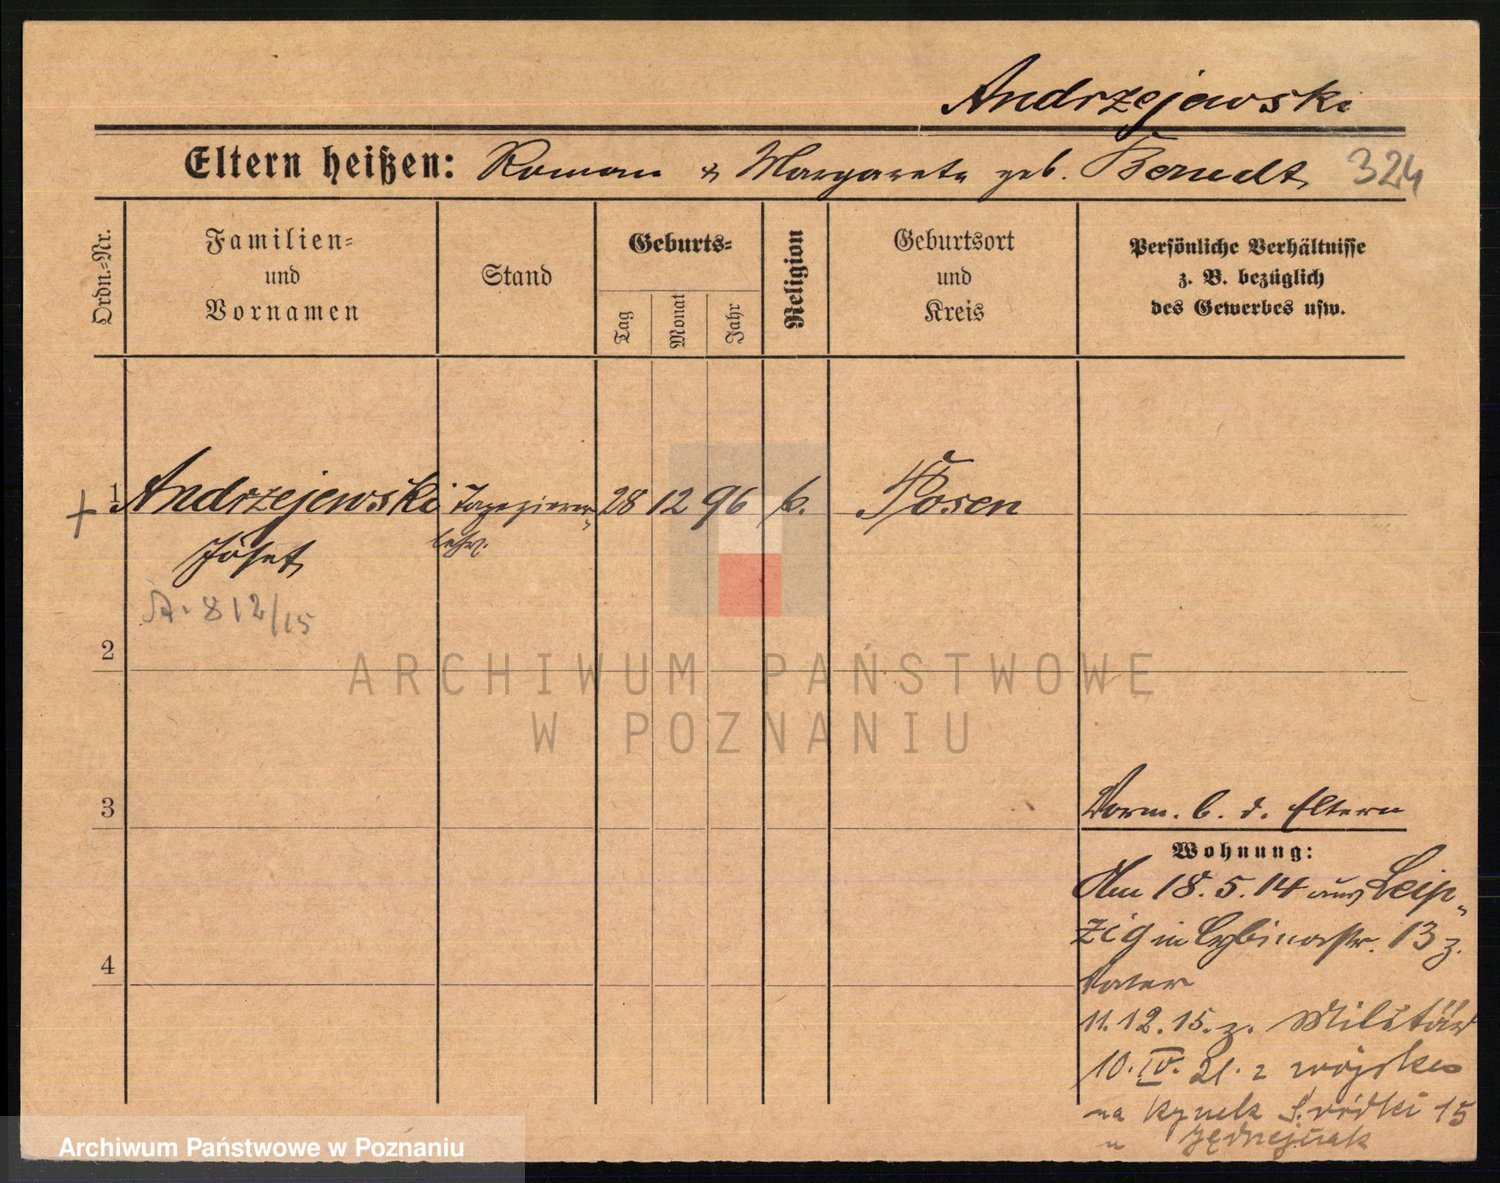 Andrzejewski
Eltern heißen: Roman & Margarete geb. Berndt 324
Ordn.-Nr.
Familien-
und
Vornamen
Stand
Geburts-
Tag
Monat
Jahr
Religion
Geburtsort
und
Kreis
Persönliche Verhältnisse
z. B. bezüglich
des Gewerbes usw.
+ 1 Andrzejewski Tapezierer- 28 12 96 k. Posen
Josef lehrl.
A. 812/15
2
ARCHIWUM PAŃSTWOWE
W POZNANIU
3
Vorm. b. d. Eltern
Wohnung:
Am 18.5.14 aus Leip-
zig in Cybinastr. 13 z.
Vater
4
11.12.15. z. Militär
10.IV.21. z wojska
na Rynek Śródki 15
u Jędrzejczak
Archiwum Państwowe w Poznaniu